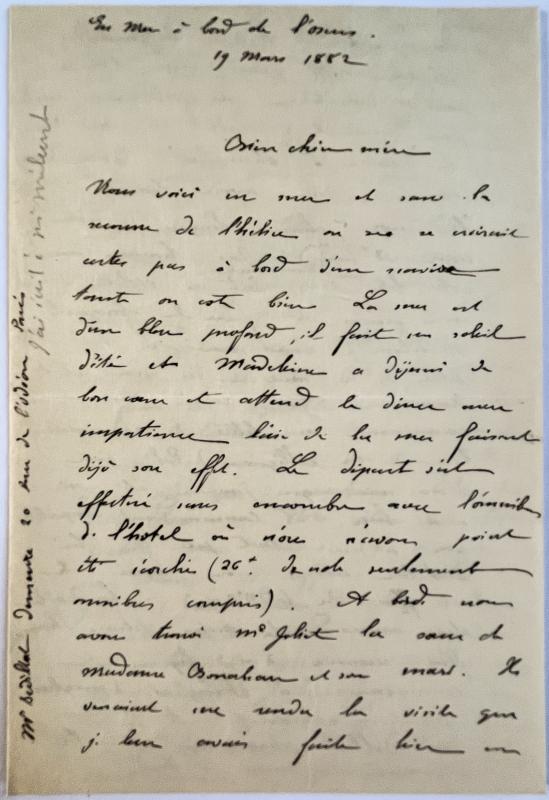 En Mer à bord de l'
19 Mars 1882
Bien chère mère
Nous voici en mer et sans la
secousse de l'hélice on ne se croirait
certes pas à bord d'un navire
tant on est bien La mer est
d'un bleu profond, il fait un soleil
d'été et Madeleine a déjeuné de
bon cœur et attend le diner avec
impatience l'air de la mer faisant
déjà son effet. Le départ s'est
effectué sans encombre avec l'omnibus
de l'hotel où nous n'avons point
été écorchés (26 f. de note seulement
omnibus compris). A bord nous
avons trouvé Me Joliet la sœur de
Madame et son mari. Ils
venaient me rendre la visite que
je leur avais faite hier en
Mr demeure 20 rue de l'Odéon Paris